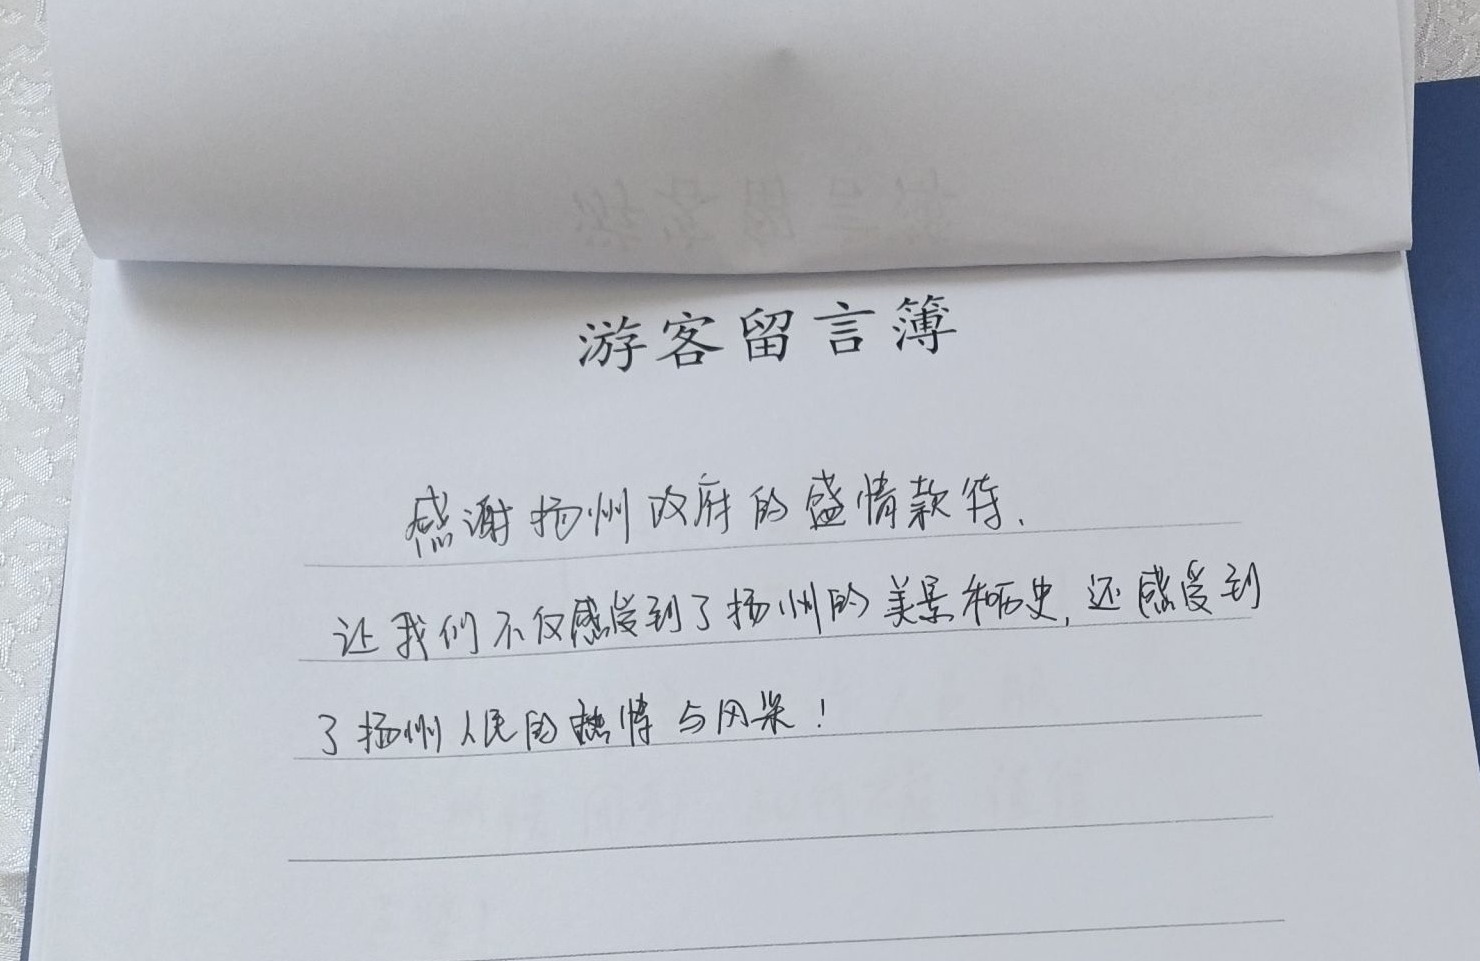 游客留言簿
感谢扬州政府的盛情款待、
让我们不仅感受到了扬州的美景和历史,还感受到
了扬州人民的热情与风采!